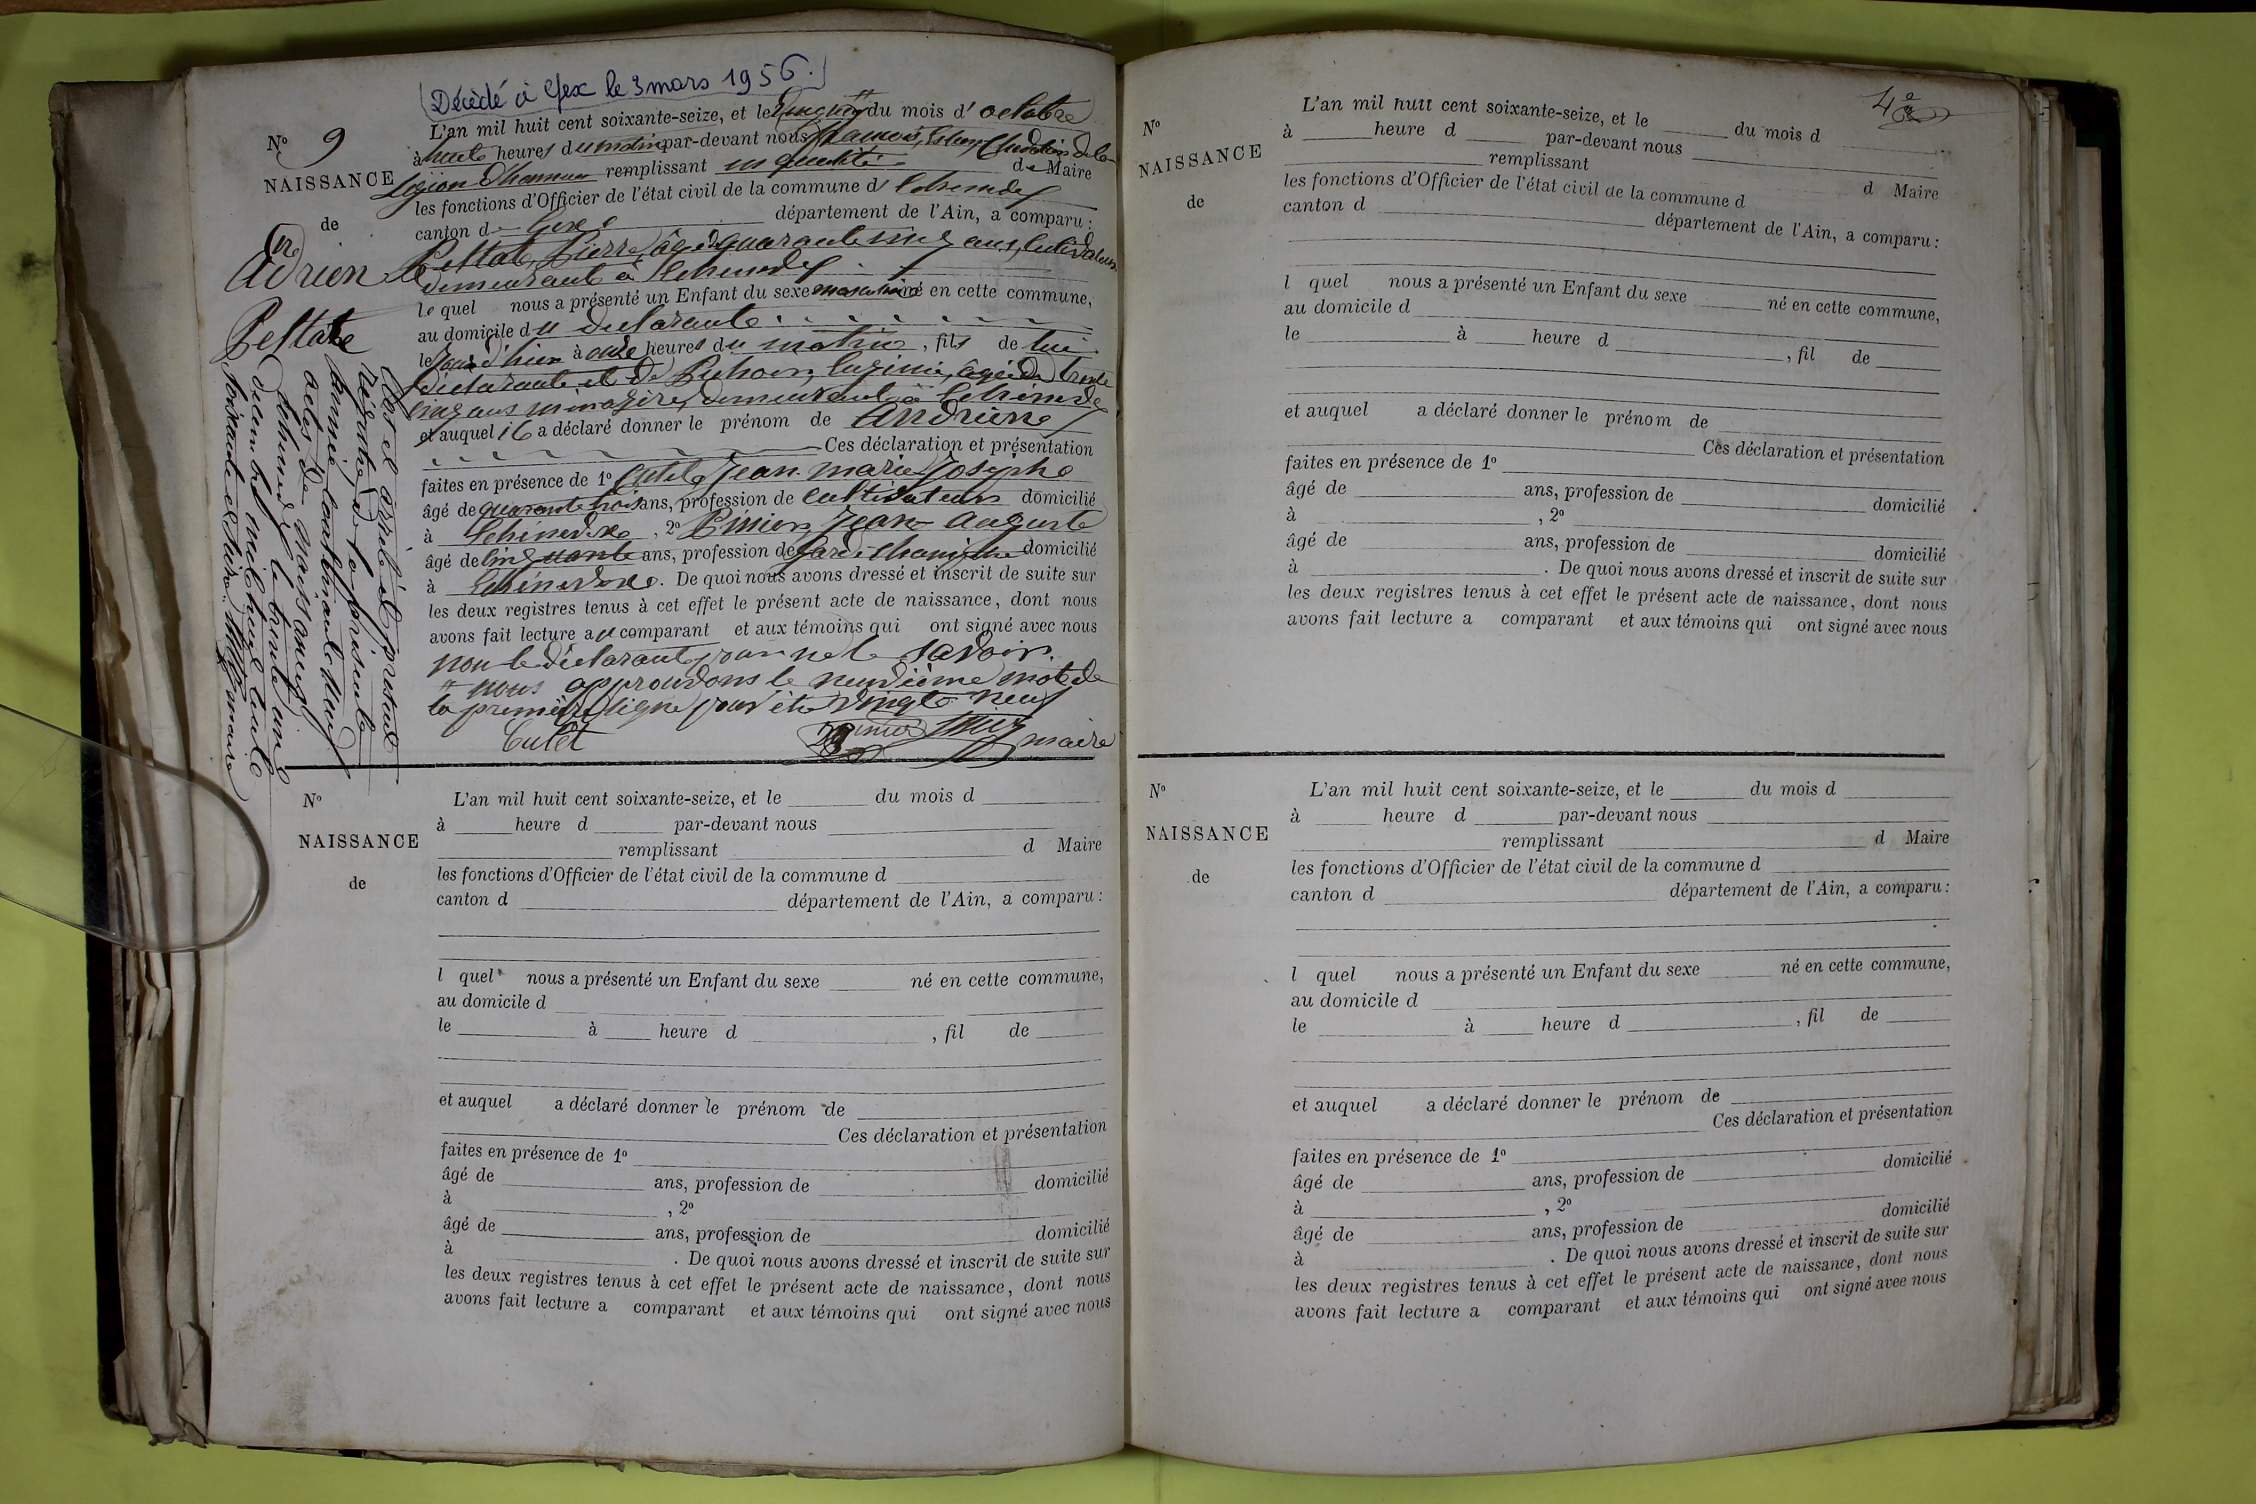 (Décédé à Gex le 3 mars 1956.)
No 9
NAISSANCE
de
Adrien
Pellat
L'an mil huit cent soixante-seize, et le du mois d'octobre
à huit heures du matin par-devant nous François, Chevalier de la
Légion d'honneur remplissant en qualité de Maire
les fonctions d'Officier de l'état civil de la commune d'Echenevex
canton de Gex département de l'Ain, a comparu :
Pellat, Pierre, âgé de quarante cinq ans, cultivateur
demeurant à Echenevex
lequel nous a présenté un Enfant du sexe masculin né en cette commune,
au domicile du déclarant
le jour d'hier à onze heures du matin, fils de lui
déclarant et de âgée de trente
cinq ans ménagère, demeurant à Echenevex
et auquel il a déclaré donner le prénom de Andrien
Ces déclaration et présentation
faites en présence de 1o Jean marie Josephe
âgé de quarante trois ans, profession de cultivateur domicilié
à Echenevex, 2o Jean Auguste
âgé de cinquante ans, profession de garde champêtre domicilié
à Echenevex. De quoi nous avons dressé et inscrit de suite sur
les deux registres tenus à cet effet le présent acte de naissance, dont nous
avons fait lecture au comparant et aux témoins qui ont signé avec nous
non le déclarant pour ne le savoir.
nous approuvons le neuvième mot de
la première ligne pour être vingt neuf
Cutet
maire
Clos et arrêté le présent
registre de la présente
année contenant neuf
actes de naissances
Echenevex le trente un
décembre mil huit cent
soixante et seize. maire
No
NAISSANCE
de
L'an mil huit cent soixante-seize, et le du mois d
à heure d par-devant nous
remplissant d Maire
les fonctions d'Officier de l'état civil de la commune d
canton d département de l'Ain, a comparu :
l quel nous a présenté un Enfant du sexe né en cette commune,
au domicile d
le à heure d , fil de
et auquel a déclaré donner le prénom de
Ces déclaration et présentation
faites en présence de 1o
âgé de ans, profession de domicilié
à , 2o
âgé de ans, profession de domicilié
à . De quoi nous avons dressé et inscrit de suite sur
les deux registres tenus à cet effet le présent acte de naissance, dont nous
avons fait lecture a comparant et aux témoins qui ont signé avec nous
4
No
NAISSANCE
de
L'an mil huit cent soixante-seize, et le du mois d
à heure d par-devant nous
remplissant d Maire
les fonctions d'Officier de l'état civil de la commune d
canton d département de l'Ain, a comparu :
l quel nous a présenté un Enfant du sexe né en cette commune,
au domicile d
le à heure d , fil de
et auquel a déclaré donner le prénom de
Ces déclaration et présentation
faites en présence de 1o
âgé de ans, profession de domicilié
à , 2o
âgé de ans, profession de domicilié
à . De quoi nous avons dressé et inscrit de suite sur
les deux registres tenus à cet effet le présent acte de naissance, dont nous
avons fait lecture a comparant et aux témoins qui ont signé avec nous
No
NAISSANCE
de
L'an mil huit cent soixante-seize, et le du mois d
à heure d par-devant nous
remplissant d Maire
les fonctions d'Officier de l'état civil de la commune d
canton d département de l'Ain, a comparu :
l quel nous a présenté un Enfant du sexe né en cette commune,
au domicile d
le à heure d , fil de
et auquel a déclaré donner le prénom de
Ces déclaration et présentation
faites en présence de 1o
âgé de ans, profession de domicilié
à , 2o
âgé de ans, profession de domicilié
à . De quoi nous avons dressé et inscrit de suite sur
les deux registres tenus à cet effet le présent acte de naissance, dont nous
avons fait lecture a comparant et aux témoins qui ont signé avec nous